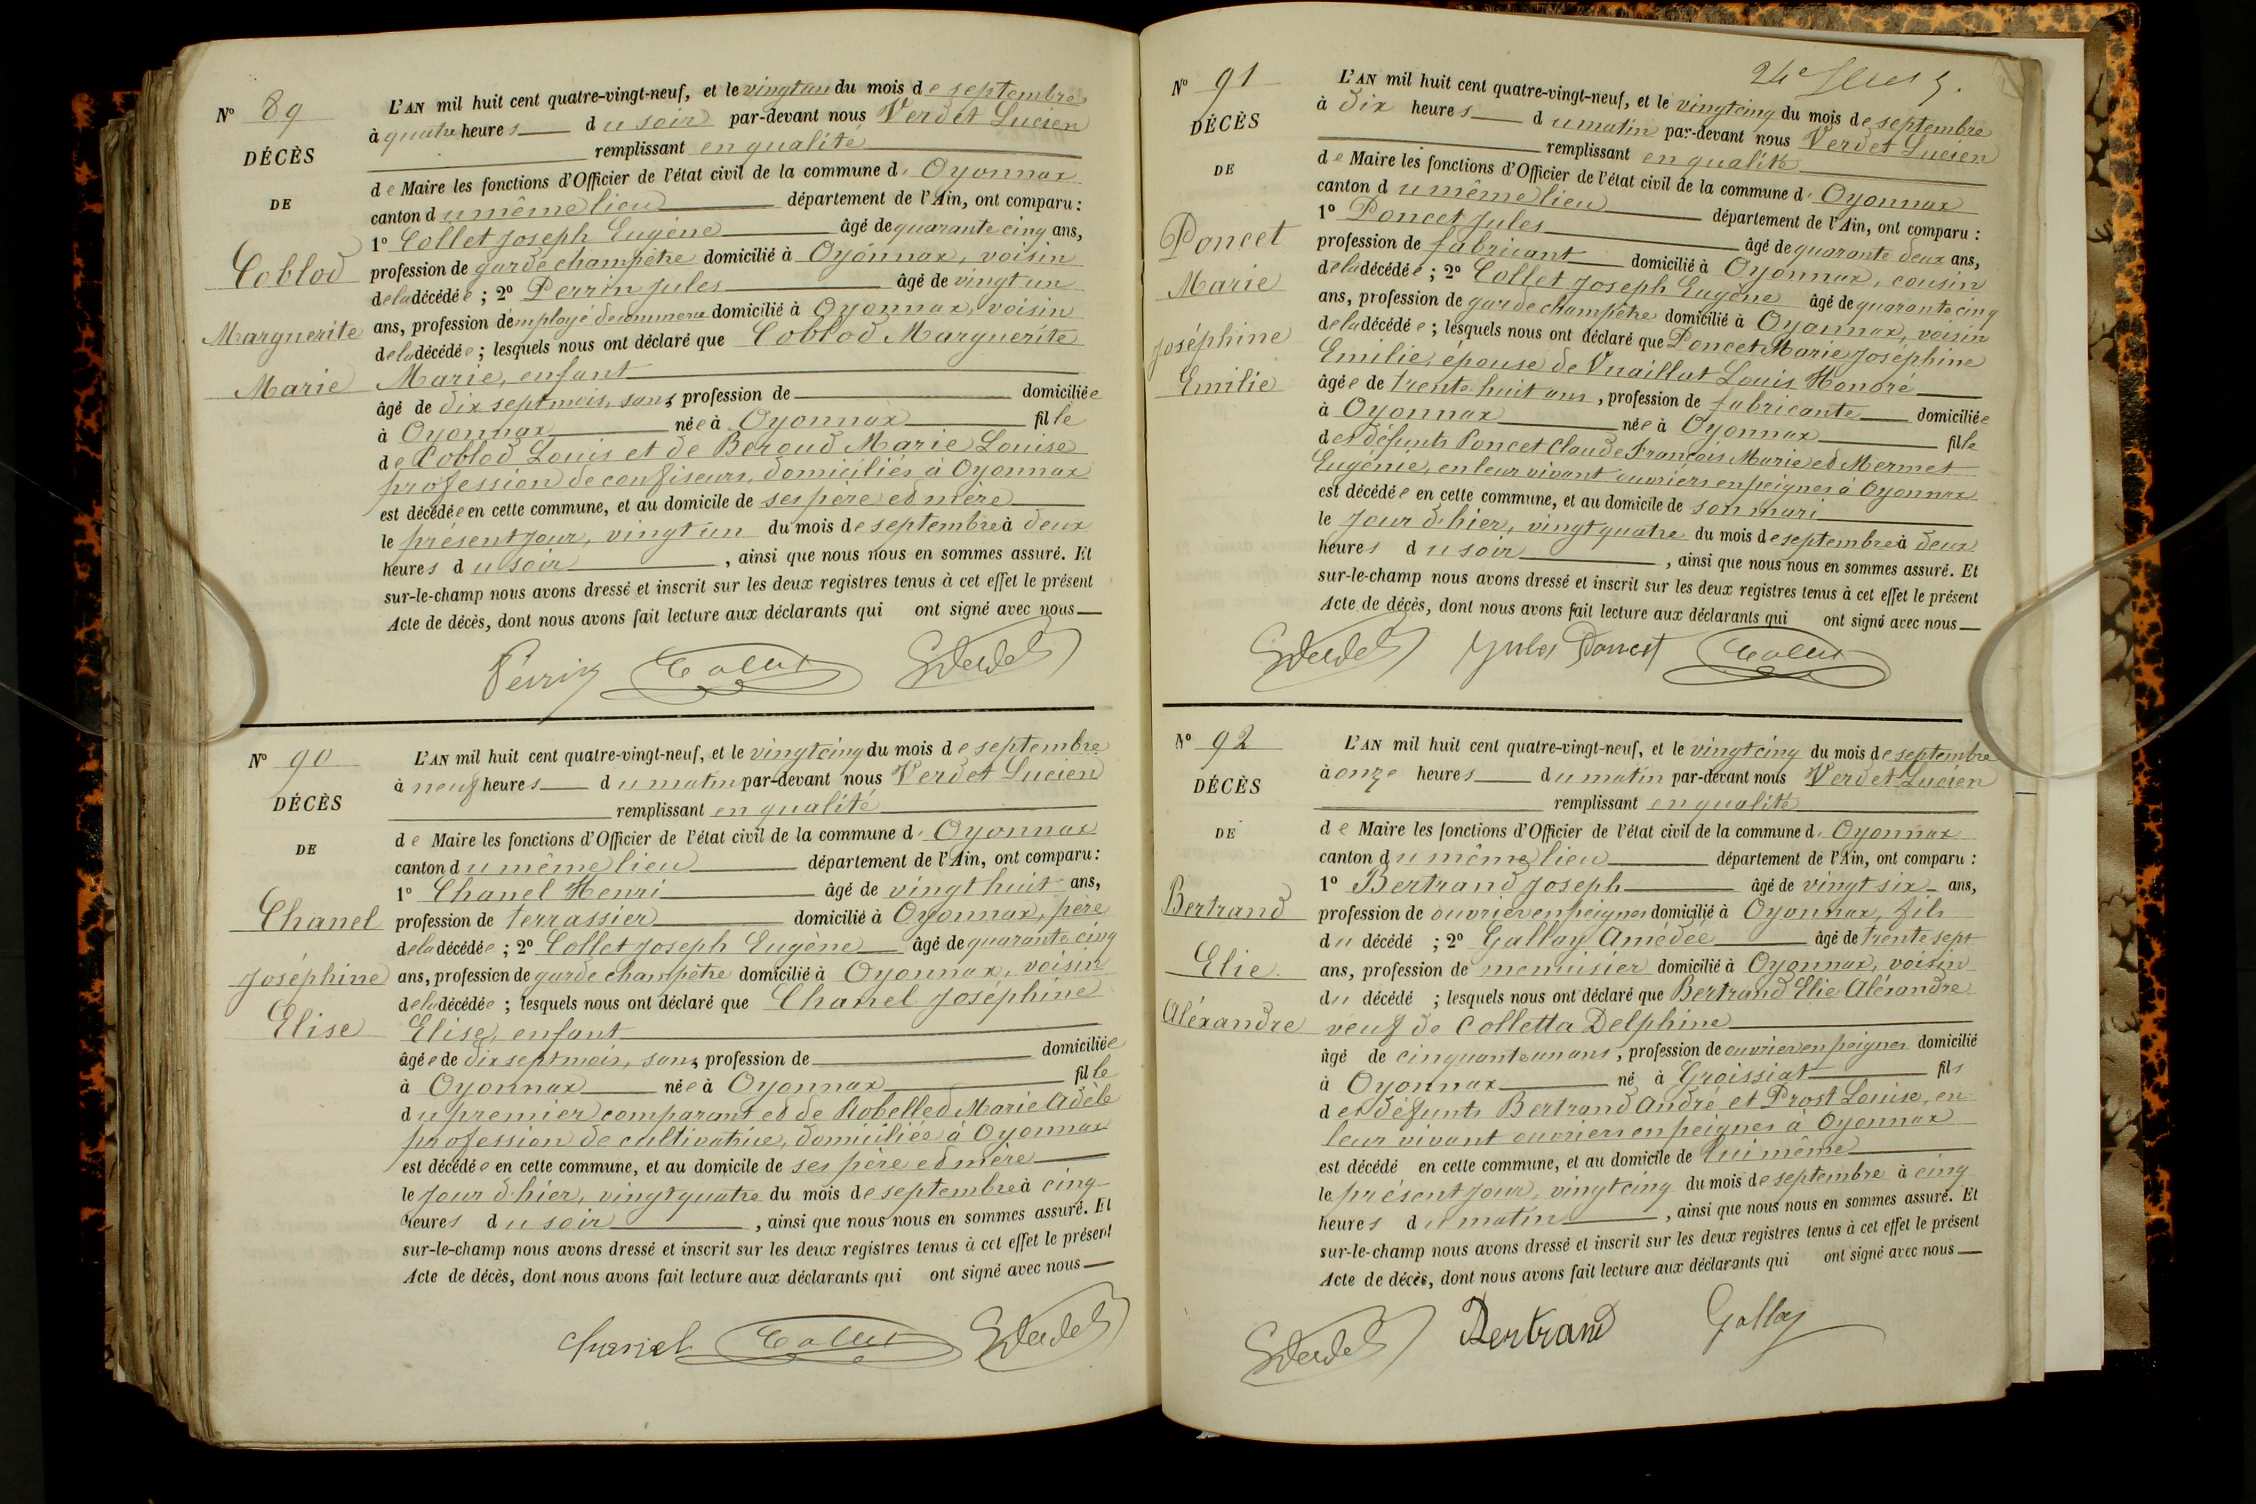 Nº 89
DÉCÈS
DE
Coblod
Marguerite
Marie
L'AN mil huit cent quatre-vingt-neuf, et le vingt un du mois de septembre
à quatre heures du soir par-devant nous Verdet Lucien
remplissant en qualité
de Maire les fonctions d'Officier de l'état civil de la commune d' Oyonnax
canton du même lieu département de l'Ain, ont comparu :
1º Collet Joseph Eugène âgé de quarante cinq ans,
profession de garde champêtre domicilié à Oyonnax, voisin
de la décédée ; 2º Perrin Jules âgé de vingt un
ans, profession d'employé de commerce domicilié à Oyonnax, voisin
de la décédée ; lesquels nous ont déclaré que Coblod Marguerite
Marie, enfant
âgé de dix sept mois, sans profession de domiciliée
à Oyonnax née à Oyonnax fille
de Coblod Louis et de Beroud Marie Louise
profession de confiseurs, domiciliés à Oyonnax
est décédée en cette commune, et au domicile de ses père et mère
le présent jour, vingt un du mois de septembre à deux
heures du soir , ainsi que nous nous en sommes assuré. Et
sur-le-champ nous avons dressé et inscrit sur les deux registres tenus à cet effet le présent
Acte de décès, dont nous avons fait lecture aux déclarants qui ont signé avec nous
Perrin Collet Verdet
Nº 90
DÉCÈS
DE
Chanel
Joséphine
Elise
L'AN mil huit cent quatre-vingt-neuf, et le vingt cinq du mois de septembre
à neuf heures du matin par-devant nous Verdet Lucien
remplissant en qualité
de Maire les fonctions d'Officier de l'état civil de la commune d' Oyonnax
canton du même lieu département de l'Ain, ont comparu :
1º Chanel Henri âgé de vingt huit ans,
profession de terrassier domicilié à Oyonnax, père
de la décédée ; 2º Collet Joseph Eugène âgé de quarante cinq
ans, profession de garde champêtre domicilié à Oyonnax, voisin
de la décédée ; lesquels nous ont déclaré que Chanel Joséphine
Elise, enfant
âgée de dix sept mois, sans profession de domiciliée
à Oyonnax née à Oyonnax fille
du premier comparant et de Robelled Marie Adèle
profession de cultivatrice, domiciliée à Oyonnax
est décédée en cette commune, et au domicile de ses père et mère
le jour d'hier, vingt quatre du mois de septembre à cinq
heures du soir , ainsi que nous nous en sommes assuré. Et
sur-le-champ nous avons dressé et inscrit sur les deux registres tenus à cet effet le présent
Acte de décès, dont nous avons fait lecture aux déclarants qui ont signé avec nous
Chanel Collet Verdet
24e
Nº 91
DÉCÈS
DE
Poncet
Marie
Joséphine
Emilie
L'AN mil huit cent quatre-vingt-neuf, et le vingt cinq du mois de septembre
à dix heures du matin par-devant nous Verdet Lucien
remplissant en qualité
de Maire les fonctions d'Officier de l'état civil de la commune d' Oyonnax
canton du même lieu département de l'Ain, ont comparu :
1º Poncet Jules âgé de quarante deux ans,
profession de fabricant domicilié à Oyonnax, cousin
de la décédée ; 2º Collet Joseph Eugène âgé de quarante cinq
ans, profession de garde champêtre domicilié à Oyonnax, voisin
de la décédée ; lesquels nous ont déclaré que Poncet Marie Joséphine
Emilie, épouse de Vuaillat Louis Honoré
âgée de trente huit ans, profession de fabricante domiciliée
à Oyonnax née à Oyonnax fille
des défunts Poncet Claude François Marie et Mermet
Eugénie, en leur vivant ouvriers en peignes à Oyonnax
est décédée en cette commune, et au domicile de son mari
le jour d'hier, vingt quatre du mois de septembre à deux
heures du soir , ainsi que nous nous en sommes assuré. Et
sur-le-champ nous avons dressé et inscrit sur les deux registres tenus à cet effet le présent
Acte de décès, dont nous avons fait lecture aux déclarants qui ont signé avec nous
Verdet Jules Poncet Collet
Nº 92
DÉCÈS
DE
Bertrand
Elie
Aléxandre
L'AN mil huit cent quatre-vingt-neuf, et le vingt cinq du mois de septembre
à onze heures du matin par-devant nous Verdet Lucien
remplissant en qualité
de Maire les fonctions d'Officier de l'état civil de la commune d' Oyonnax
canton du même lieu département de l'Ain, ont comparu :
1º Bertrand Joseph âgé de vingt six ans,
profession de ouvrier en peignes domicilié à Oyonnax, fils
du décédé ; 2º Gallay Amédée âgé de trente sept
ans, profession de menuisier domicilié à Oyonnax, voisin
du décédé ; lesquels nous ont déclaré que Bertrand Elie Aléxandre
veuf de Colletta Delphine
âgé de cinquante un ans, profession de ouvrier en peignes domicilié
à Oyonnax né à Groissiat fils
des défunts Bertrand André et Prost Louise, en
leur vivant ouvriers en peignes à Oyonnax
est décédé en cette commune, et au domicile de lui même
le présent jour, vingt cinq du mois de septembre à cinq
heures du matin , ainsi que nous nous en sommes assuré. Et
sur-le-champ nous avons dressé et inscrit sur les deux registres tenus à cet effet le présent
Acte de décès, dont nous avons fait lecture aux déclarants qui ont signé avec nous
Verdet Bertrand Gallay